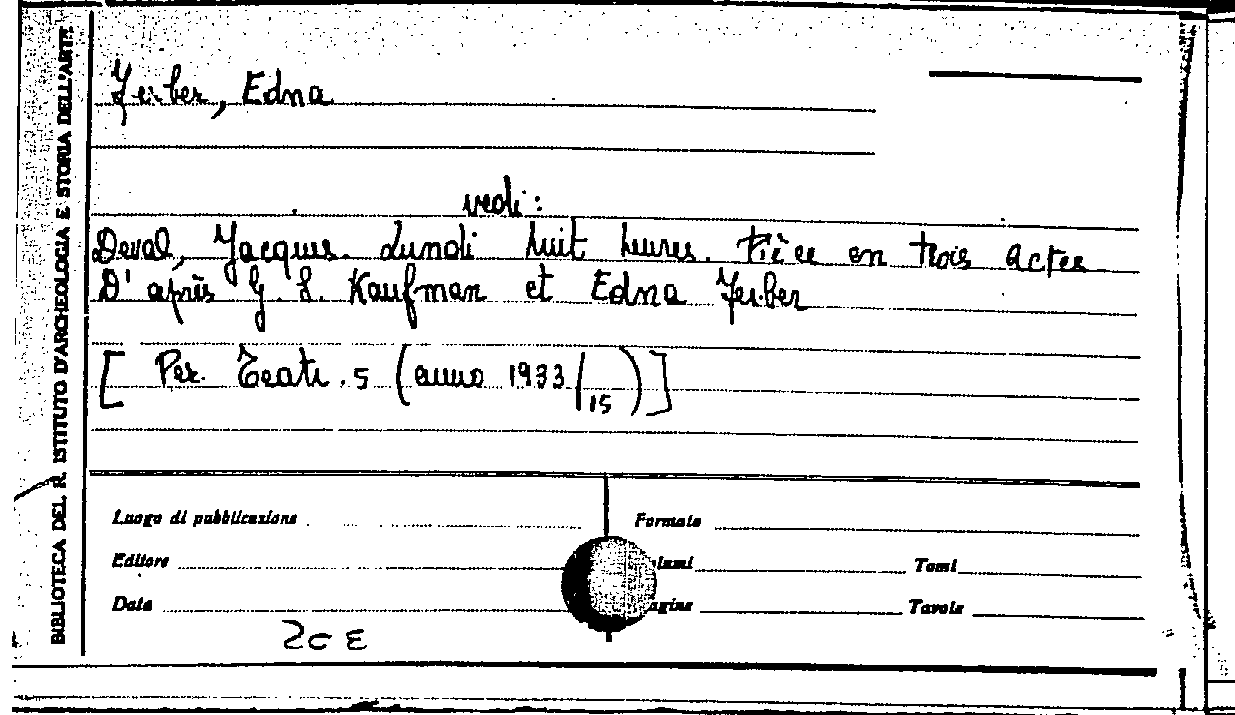 BIBLIOTECA DEL R. ISTITUTO D'ARCHEOLOGIA E STORIA DELL'ARTE
Ferber, Edna
vedi:
Deval, Jacques. Lundi huit heures. Pièce en trois actes
D'après G. S. Kaufman et Edna Ferber
[ Per. Teatr. 5 (anno 1933/15) ]
Luogo di pubblicazione
Formato
Editore
Tomi
Data
Tavole